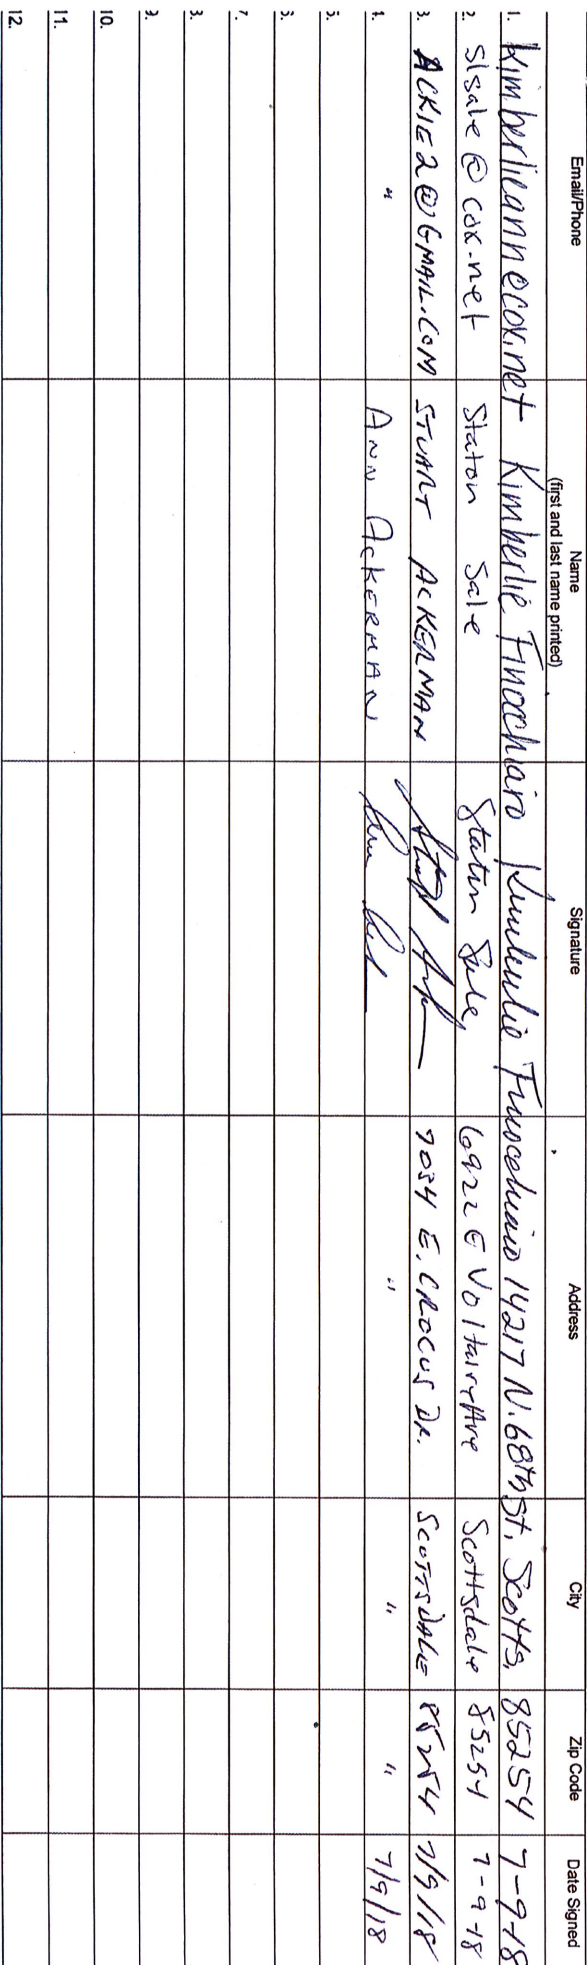 Email/Phone Name (first and last name printed) Signature Address City Zip Code Date Signed
1. Kimberlieann@cox.net Kimberlie Finocchiaro Kimberlie Finocchiaro 14217 N. 68th St. Scotts. 85254 7-9-18
2. Slsale@cox.net Staton Sale Staton Sale 6922 E Voltaire Ave Scottsdale 85254 7-9-18
3. ACKIE2@GMAIL.COM STUART ACKERMAN 7034 E. CROCUS DR. SCOTTSDALE 85254 7/9/18
4. " ANN ACKERMAN " " " 7/9/18
5.
6.
7.
8.
9.
10.
11.
12.